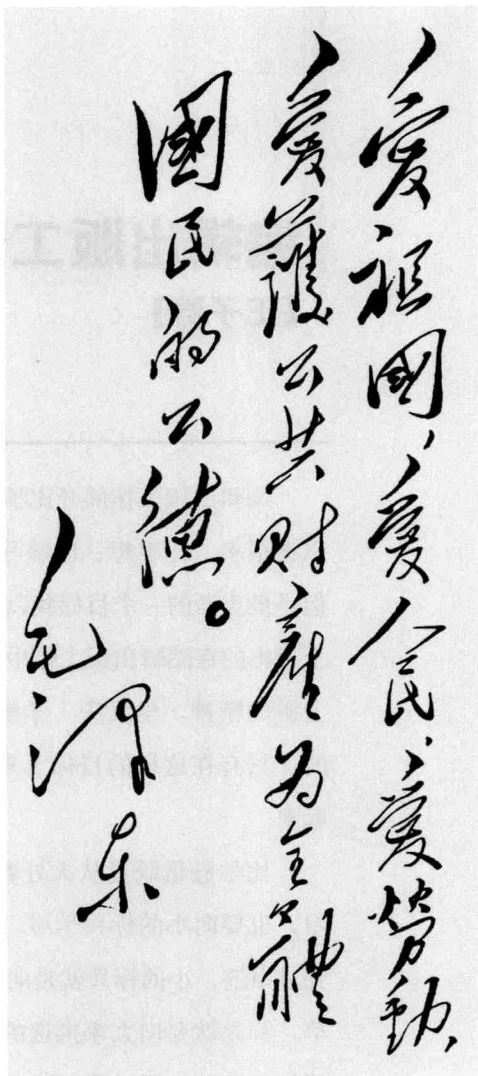 愛祖國、愛人民、愛勞動、
愛護公共財產为全體
國民的公德。
毛澤东